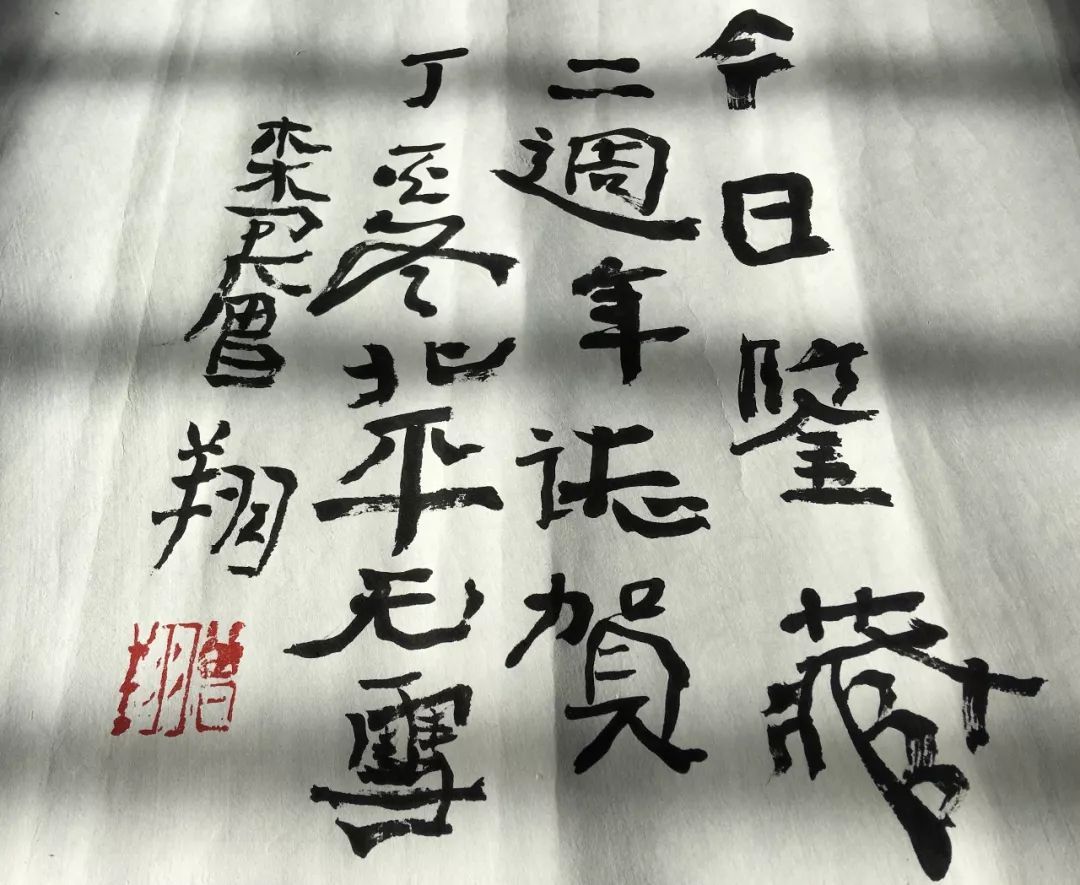 今日鑒藏
二週年誌賀
丁酉冬北平无雪
曾翔
曾翔